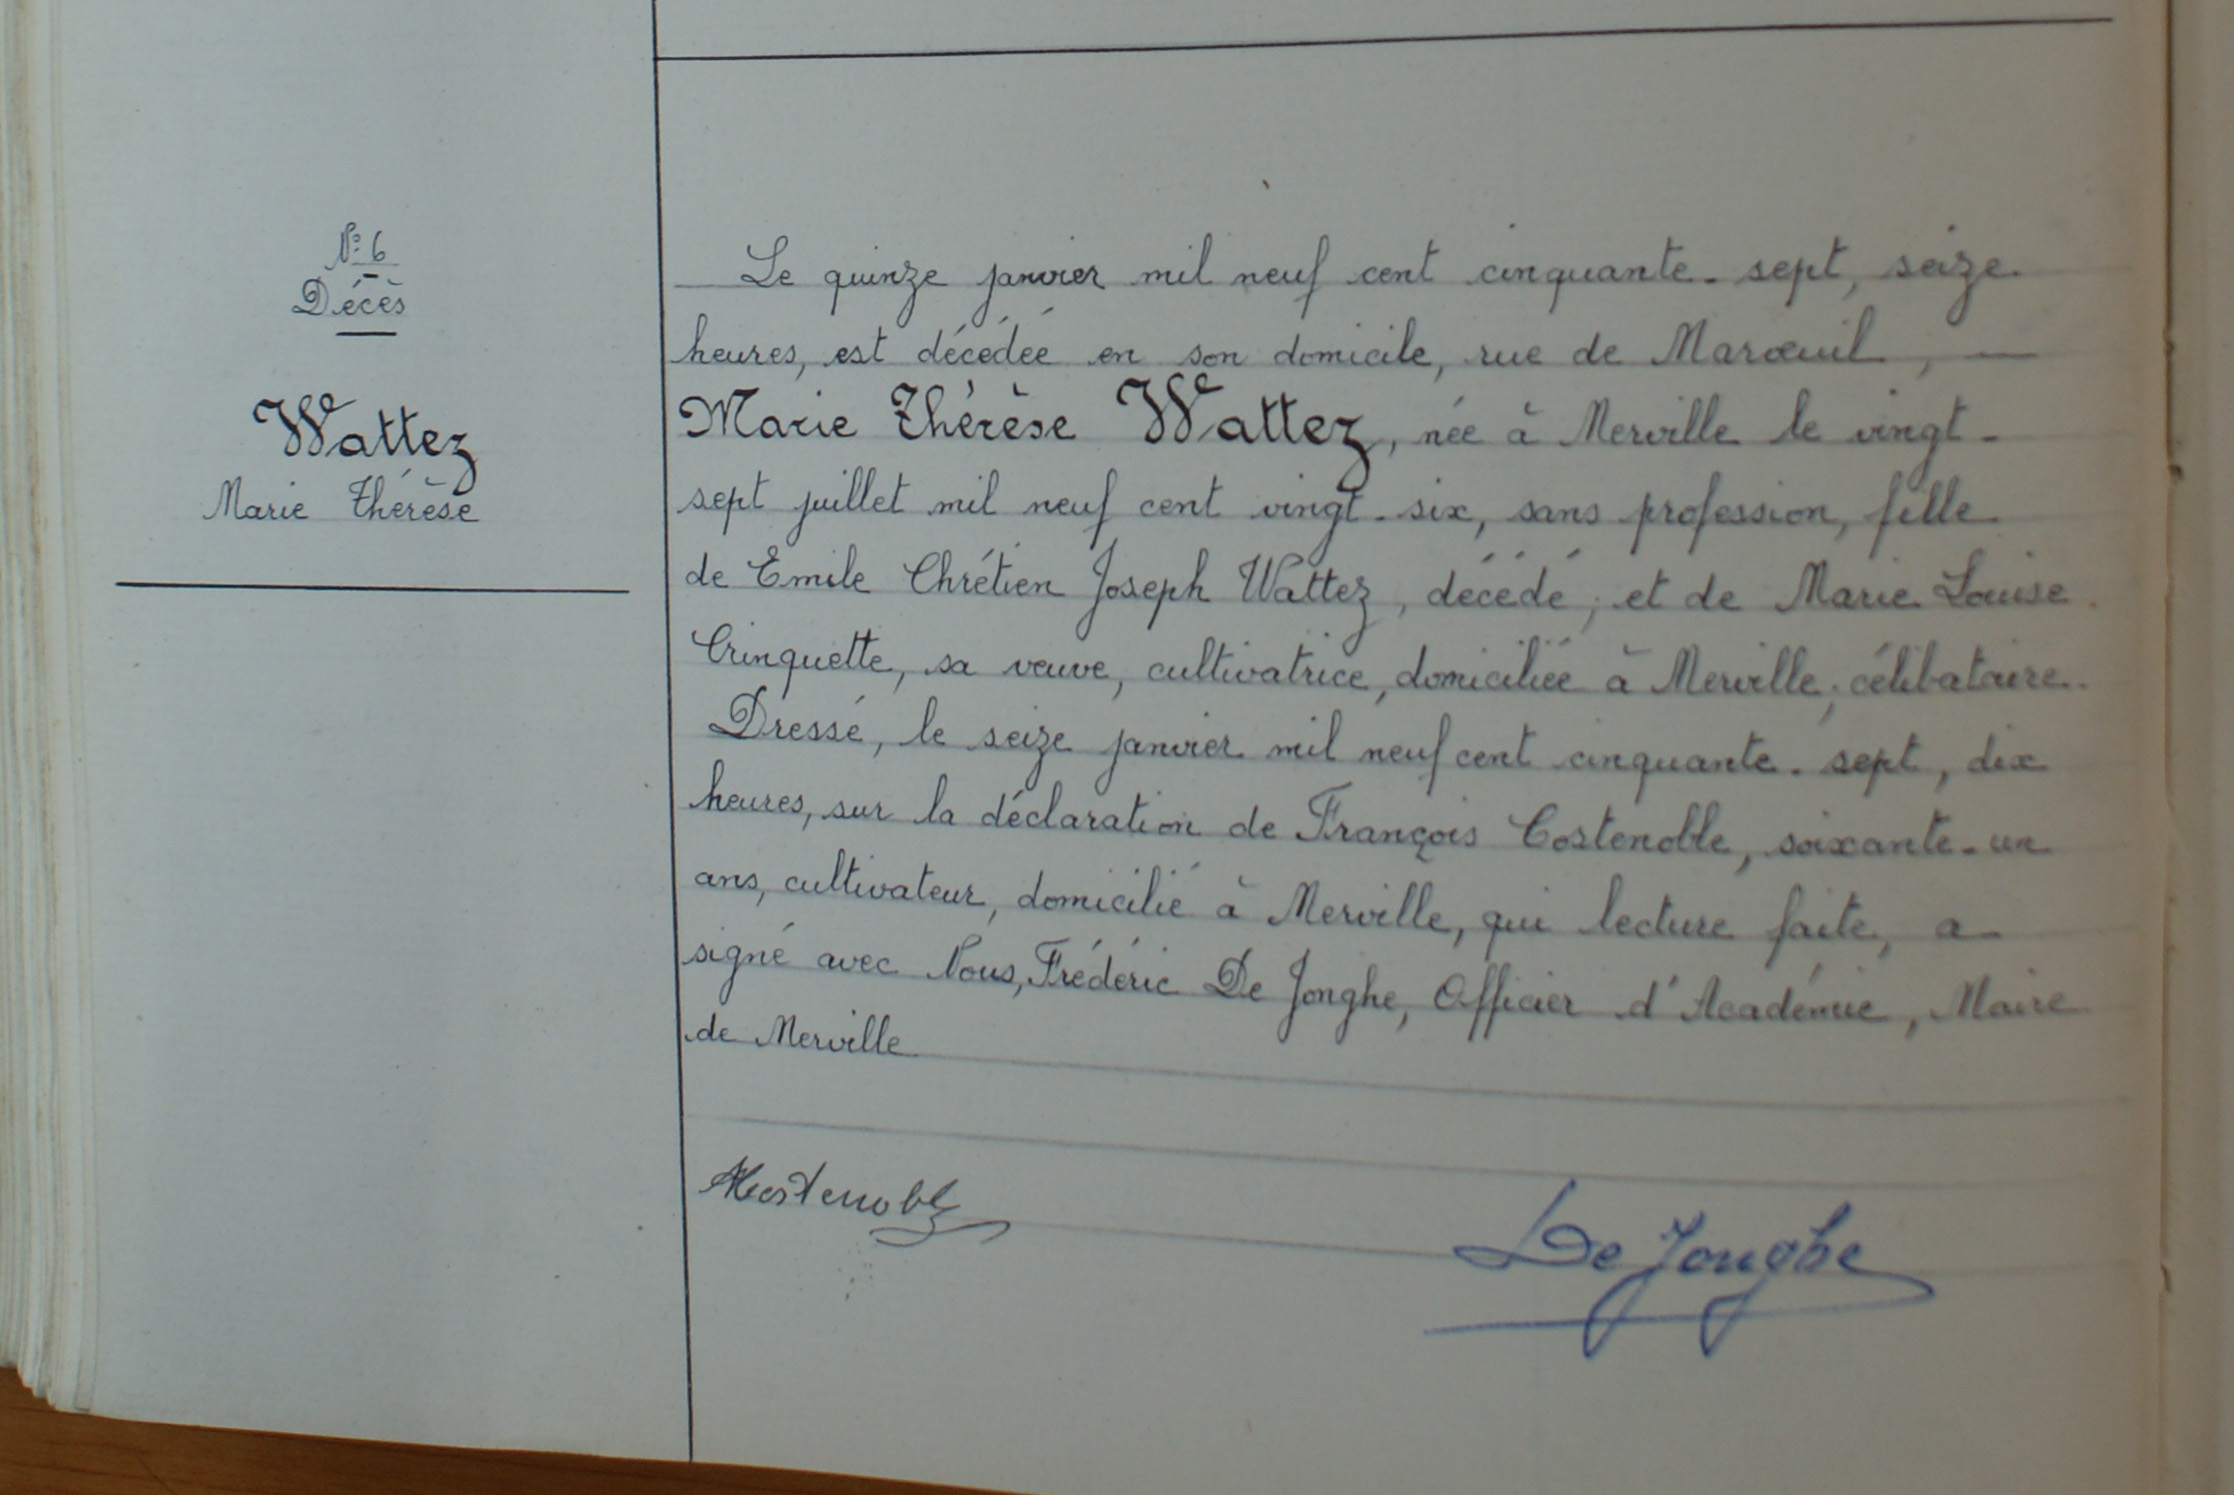 N° 6
Décès
Wattez
Marie Thérèse
Le quinze janvier mil neuf cent cinquante-sept, seize
heures, est décédée en son domicile, rue de Maroeuil, —
Marie Thérèse Wattez, née à Merville le vingt-
sept juillet mil neuf cent vingt-six, sans profession, fille
de Emile Chrétien Joseph Wattez, décédé, et de Marie Louise
Crinquette, sa veuve, cultivatrice, domiciliée à Merville; célibataire.
Dressé, le seize janvier mil neuf cent cinquante-sept, dix
heures, sur la déclaration de François Costenoble, soixante-un
ans, cultivateur, domicilié à Merville, qui lecture faite, a
signé avec Nous, Frédéric De Jonghe, Officier d'Académie, Maire
de Merville
De Jonghe